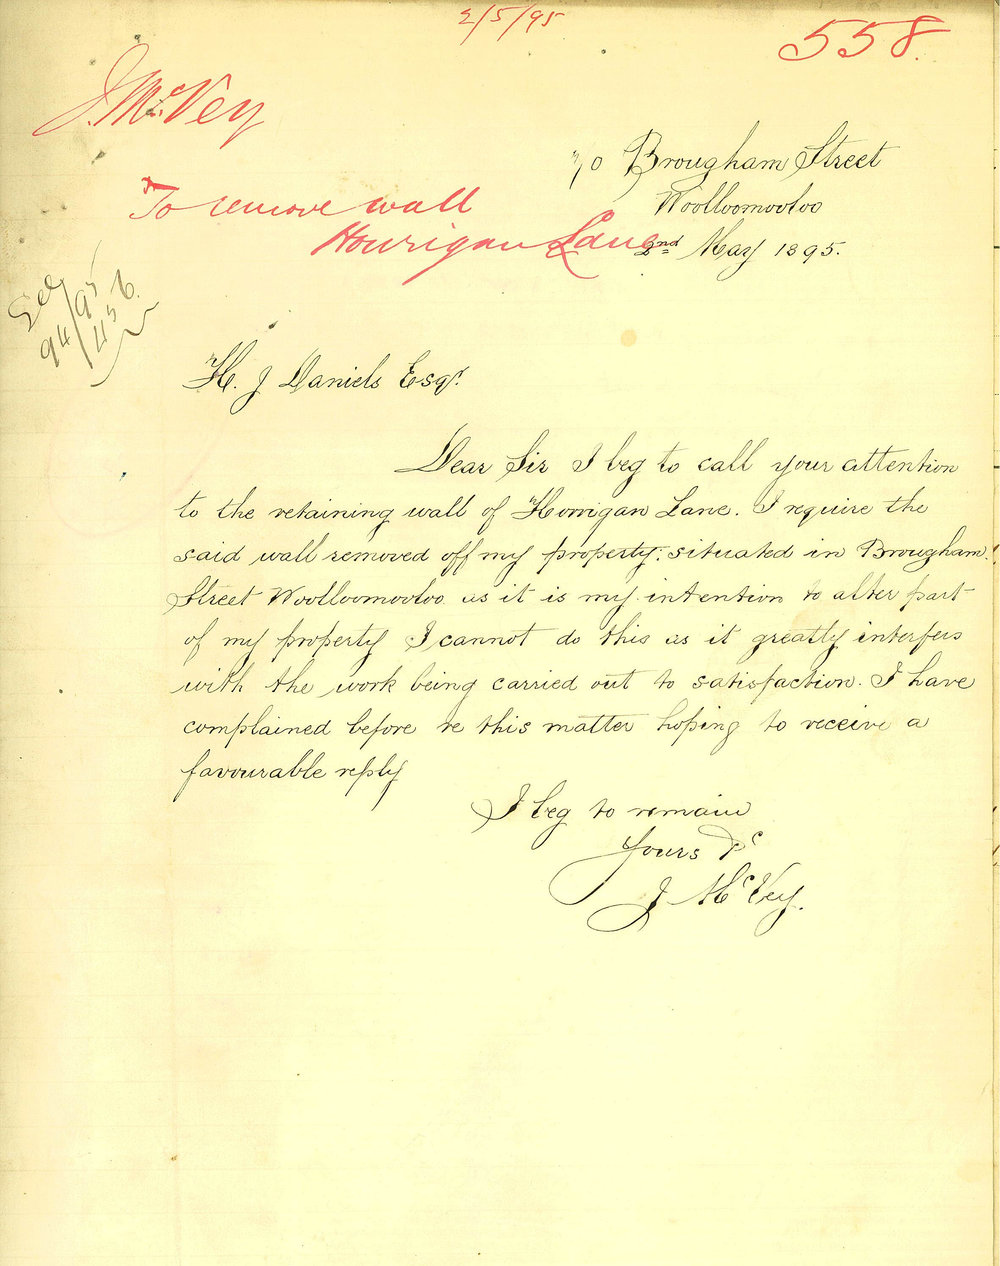 2/5/95
558.
J. McVey
70 Brougham Street
Woolloomooloo
To remove wall
Hourigan Lane
2nd May 1895.
See
94/95
/456.
H. J Daniels Esqr.
Dear Sir I beg to call your attention
to the retaining wall of Hourigan Lane. I require the
said wall removed off my property. situated in Brougham
Street Woolloomooloo as it is my intention to alter part
of my property I cannot do this as it greatly interfers
with the work being carried out to satisfaction. I have
complained before re this matter hoping to receive a
favourable reply
I beg to remain
Yours &c
J McVey.